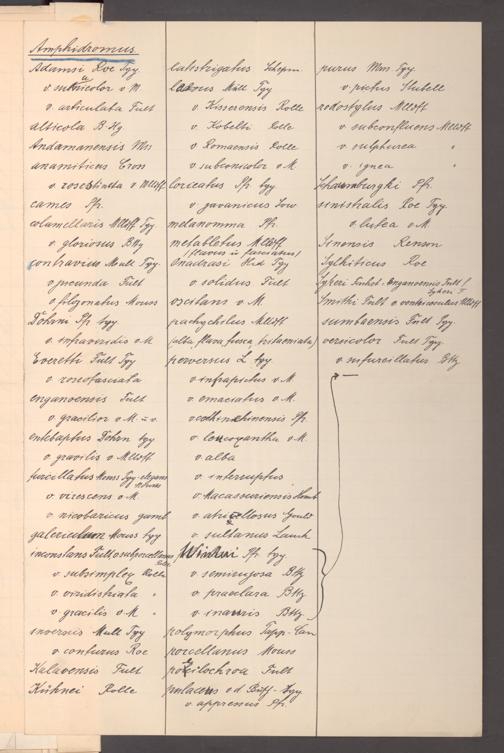 Amphidromus.
Adamsi Rve Typ
v. subunicolor v M.
v. articulata Fult
alticola B. Hg
Andamanensis Mss
anamiticus Cross
v. rosestincta v Mlldff
comes Pfr.
columellaris Mlldff Typ.
v. gloriosus Bttg
contrarius Müll Typ.
v. jucunda Fult
v. filozonatus Mouss
Dohrni Pfr typ
v. infraviridis v M.
Everetti Fult Typ
v. roseofasciata
enganoensis Fult
v. gracilior v M. = v.
entobaptus Dohrn typ
v. gracilis v. Mlldff
furcillatus Mouss Typ elegans
v. virescens v M.
v. nicobaricus
galericulum Mouss typ
inconstans Fult
v. subsimplex Rolle
v. viridistriata "
v. gracilis v M "
inversus Müll Typ
v. contusus Rve
Kalaoensis Fult
Kühnei Rolle
latestrigatus Schepm.
laevus Müll Typ
v. Kisserensis Rolle
v. Kobelti Rolle
v. Romaensis Rolle
v. subunicolor v. M
loricatus Pfr typ
v. javanicus Sow
melanomma Pfr.
metabletus Mlldff
(flavus u fasciatus)
Quadrasi Hid Typ
v. solidus Fult
oscitans v. M.
pachychilus Mlldff
(alba, flava, fusca, tritaeniata)
perversus L typ.
v infrapictus v. M
v. emaciatus v. M.
v cochinchinensis Pfr.
v. leucoxantha v. M
v. alba
v. interruptus
v. Macassariensis Homb
v. atricallosus Gould
v. sultanus Lamk
Winteri Pfr typ
v. semirugosa Bttg
v. praeclara Bttg
v. inauris Bttg.
polymorphus Tapp-Can
porcellanus Mouss
poecilochroa Fult
pulcher v d Busch Typ
v. appressus Pfr.
purus Mss Typ
v. pictus
redostylus Mlldff
v subconfluens Mlldff
v. sulphurea "
v. ignea "
Schomburgki Pfr.
sinistralis Rve Typ
v. lutea v. M
Sinensis Benson
Sylheticus Rve
Smithi Fult v. ventriosulus Mlldff
sumbaensis Fult typ.
versicolor Fult Typ.
v. infuscatus Bttg